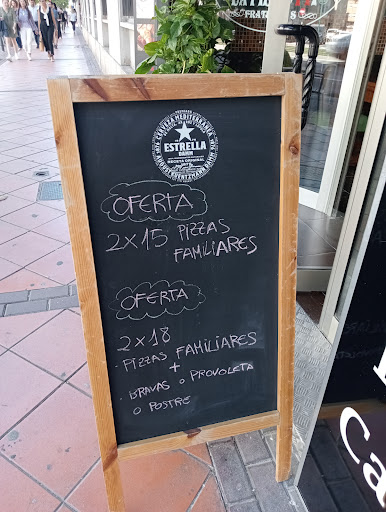 CERVEZA MEDITERRÁNEA
ESTRELLA
DAMM
RECETA ORIGINAL
1876
OFERTA
2x15 PIZZAS
FAMILIARES
OFERTA
2x18
PIZZAS FAMILIARES
+
BRAVAS O PROVOLETA
O POSTRE